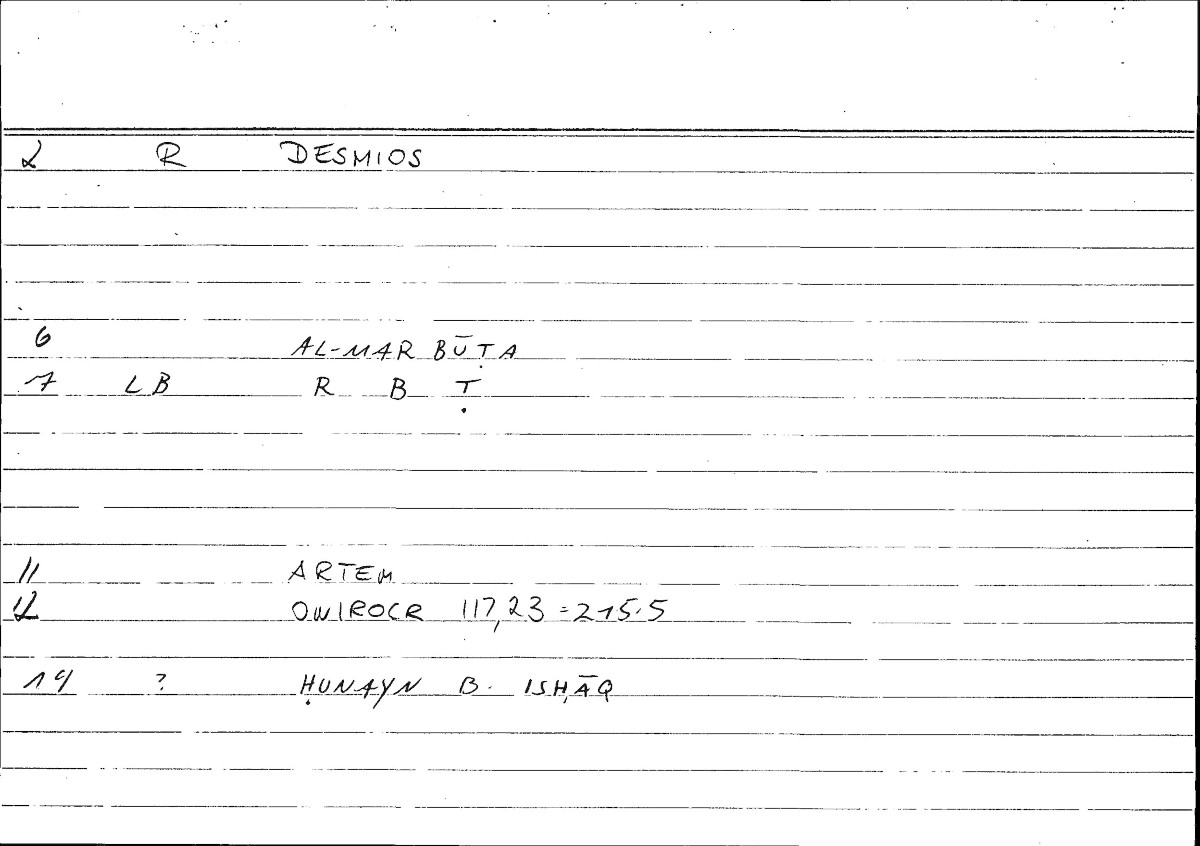 2 R DESMIOS
6 AL-MARBŪṬA
7 LB R B Ṭ
11 ARTEM
12 ONIROCR 117,23 = 215.5
19 ? ḤUNAYN B. ISḤĀQ